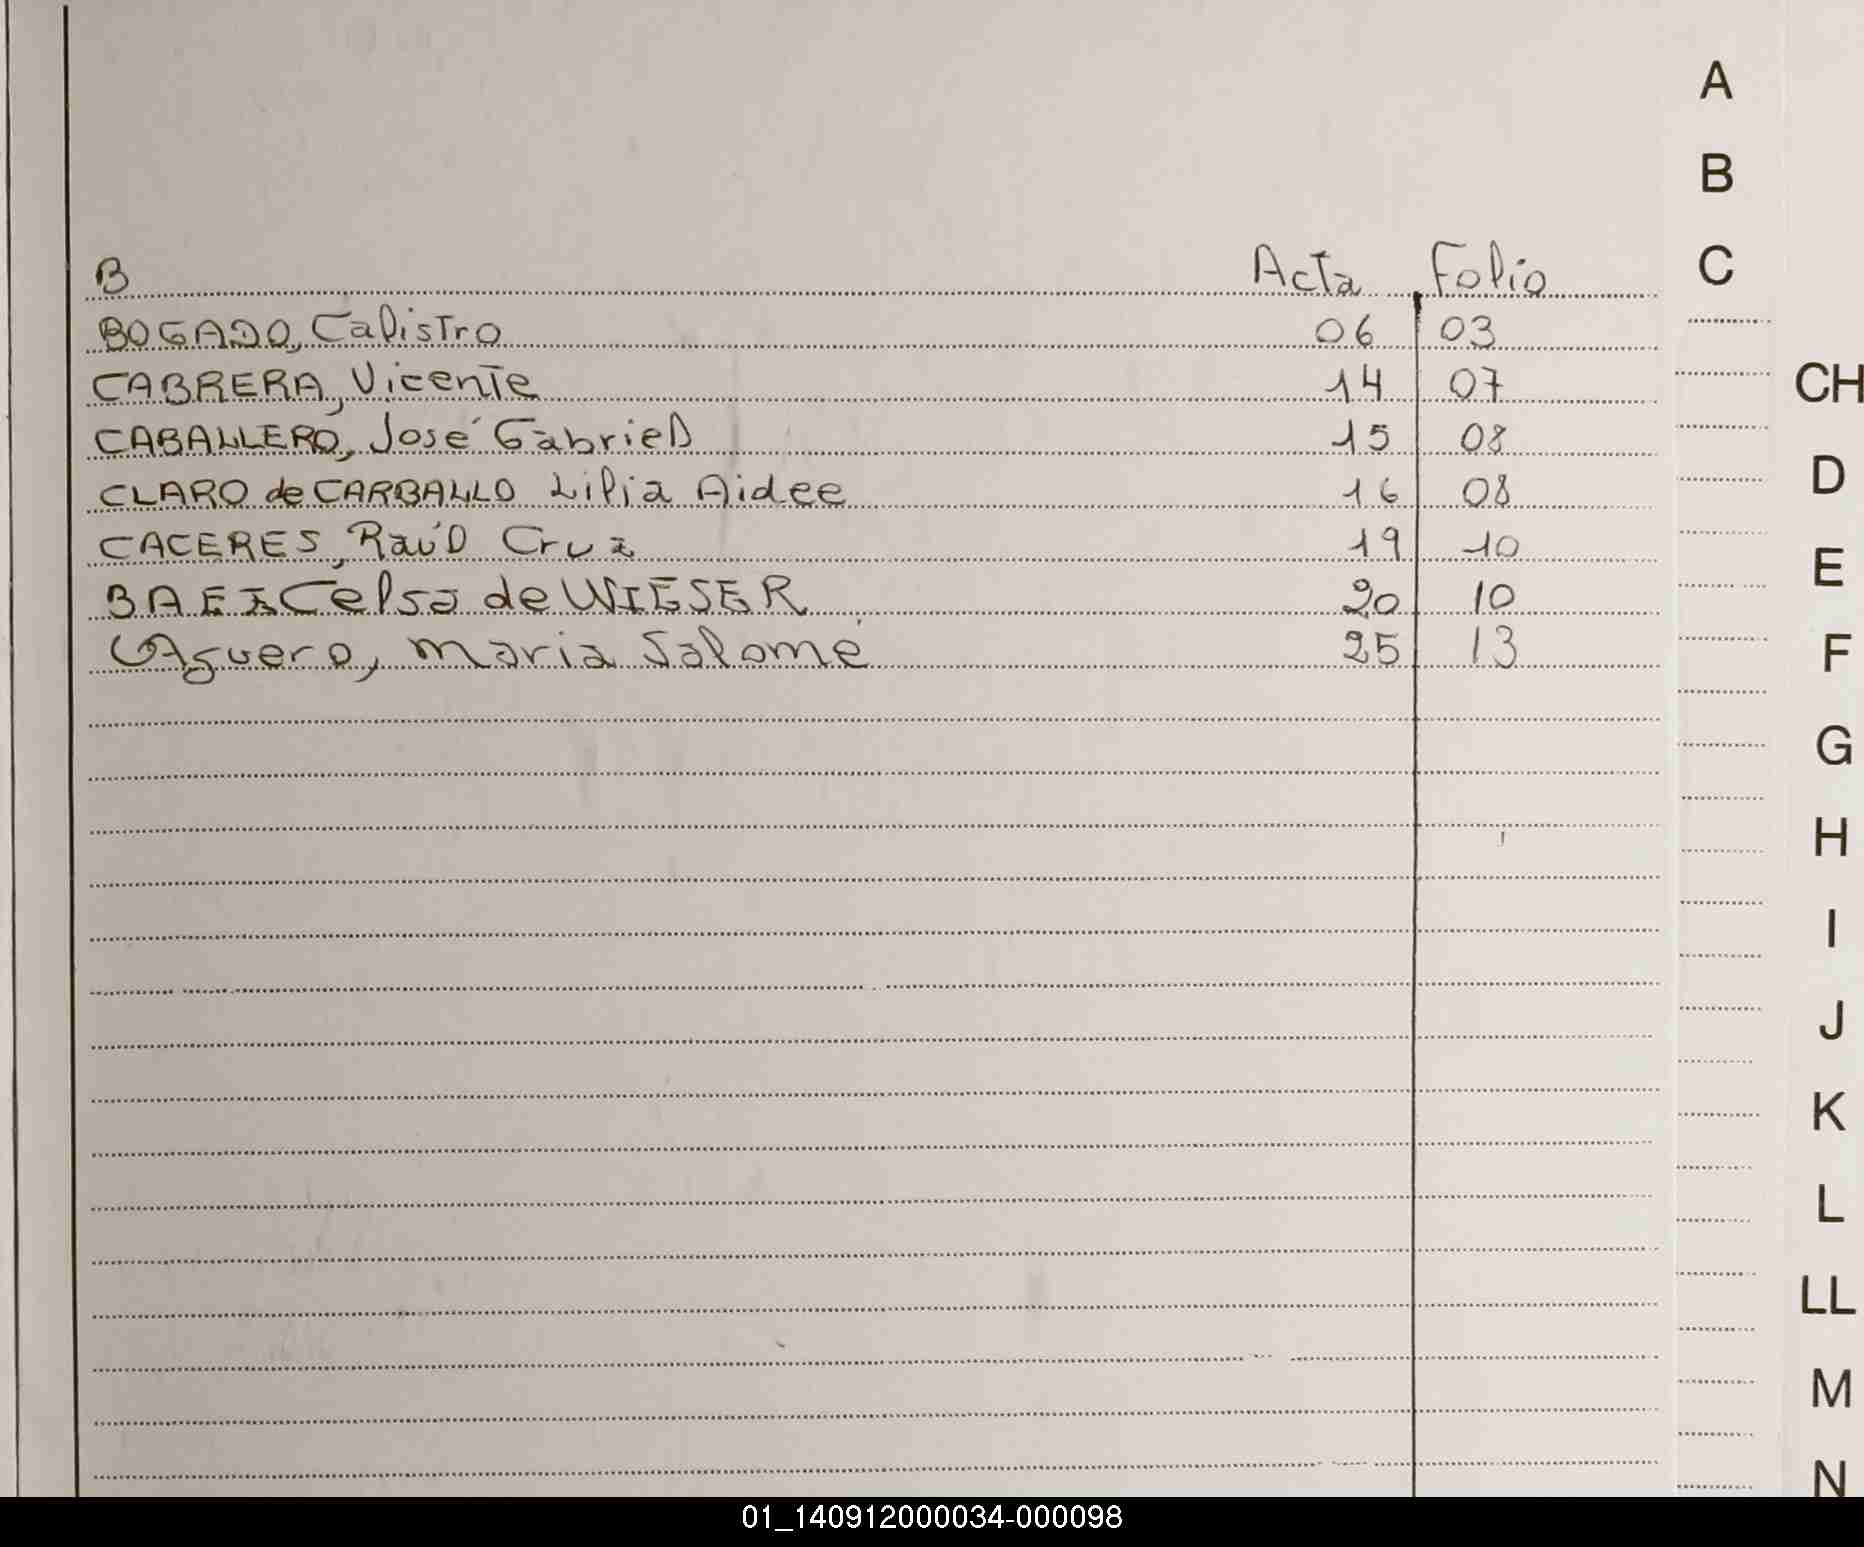 B Acta Folio
BOGADO, Calistro 06 03
CABRERA, Vicente 14 07
CABALLERO, José Gabriel 15 08
CLARO de CARBALLO Lilia Aidee 16 08
CACERES, Raúl Cruz 19 10
BAEZ Celsa de WIESER 20 10
Aguero, Maria Salomé 25 13
A
B
C
CH
D
E
F
G
H
I
J
K
L
LL
M
N
01_140912000034-000098